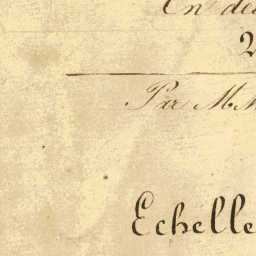 En de
2
Par MM
Echelle